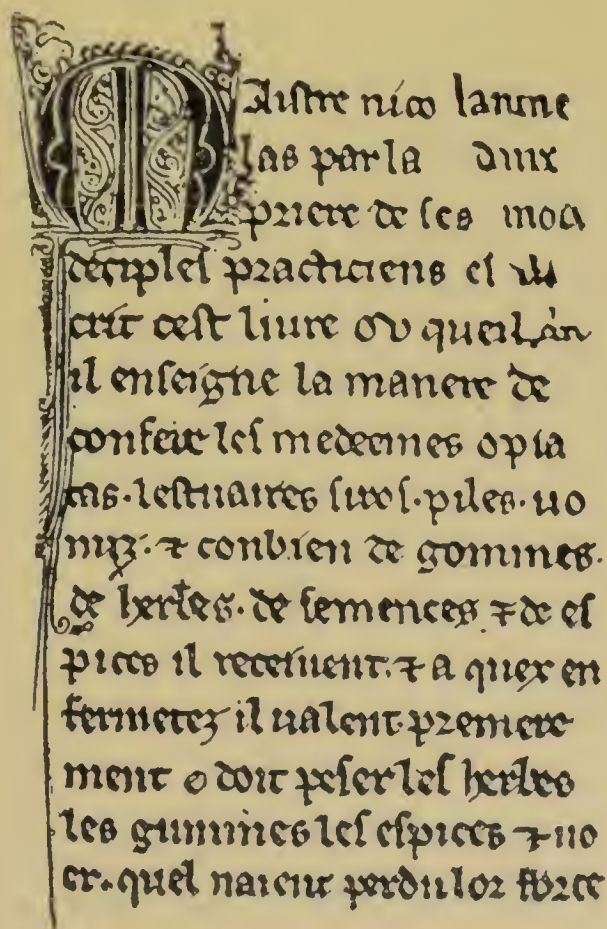 Maistre nico lanme
las par la
priere de ses
deciples practiciens es
crit cest liure ou queil
il enseigne la manere de
confeir les medecines opia
tas. lestuaires siros. piles. uo
miz. ⁊ conbien de gommes.
de herbes. de semences ⁊ de es
pices il receiuent. ⁊ a quex en
fermetez il ualent. premiere
ment doit peser les herbes
les gummes les espices ⁊ uo
er. quel naient perdu lor force